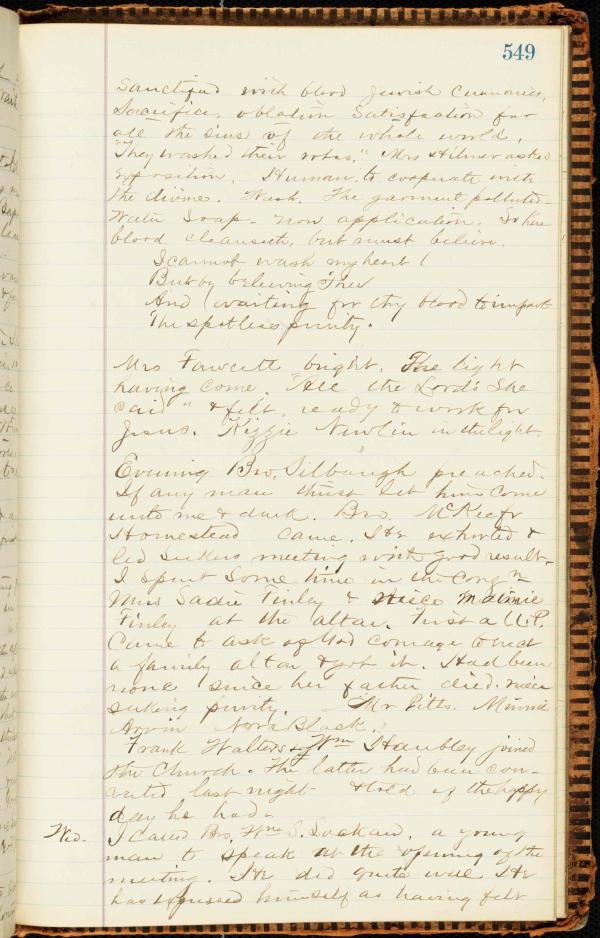 549
Sanctified with blood Jewish Ceremonies,
Sacrifice, oblation Satisfaction for
all the sins of the whole world.
"They washed their robes." Mrs Hilmer asked
exposition. Human to cooperate with
the divine. Wash. The garment polluted-
Water Soap - now application. So here
blood cleanseth, but must believe.
I cannot wash my heart
But by believing Thee
And waiting for thy blood to impart
The spotless purity.
Mrs Fawcett bright. The light
having come. "All the Lord's She
said" & felt, ready to work for
Jesus. Kizzie Newlin in the light.
Evening Bro. Silbaugh preached.
If any man thirst let him come
unto me & drink. Bro. McKeefe
Homestead came. He exhorted &
led seekers meeting with good result.
I spent some time in the Congn
Miss Sadie Finley & niece Maimie
Finley at the altar. First a U.P.
Came to ask of God courage to erect
a family altar & got it. Had been
none since her father died. niece
seeking purity. Mr Pitts. Minnie
Arvin Nora Black.
Frank Walters & Wm Haubley joined
the Church. The latter had been con-
verted last night & told of the happy
day he had.
Wed. I called Bro. Wm S. Lockard, a young
man to speak at the opening of the
meeting. He did quite well He
has expressed himself as having felt